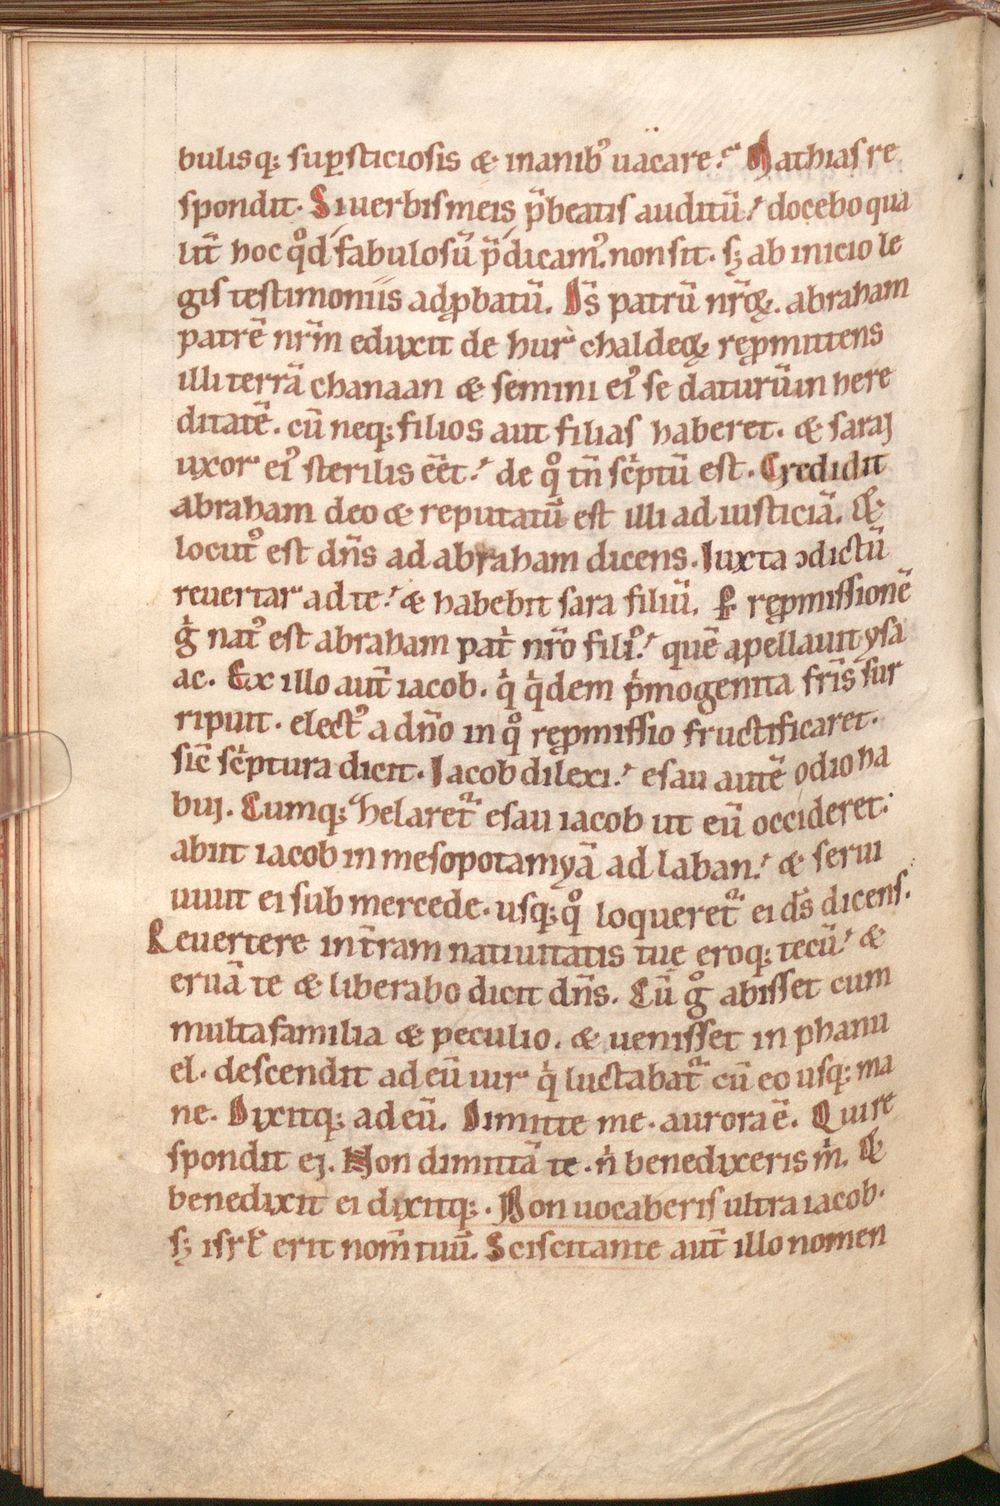 bulisq; suꝑsticiosis & inanib᾽ uacare. Mathias re
spondit. Si uerbis meis p̃beatis auditũ. docebo qua
lit̃ hoc qd̊ fabulosũ p̃dicam᾽. non sit. sꝫ ab inicio le
gis testimoniis adꝓbatũ. Ds̃ patrũ nr̃oꝝ. abraham
patrẽ nr̃m eduxit de hur chaldeoꝝ reꝓmittens
illi terrã chanaan & semini ei᾽ se daturũ in here
ditatẽ. cũ neq; filios aut filias haberet. & saraj
uxor ei᾽ sterilis eẽt. de qͦ tñ sc̃ptũ est. Credidit
abraham deo & reputatũ est illi ad iusticiã. &
locut᾽ est dñs ad abraham dicens. Iuxta ɔdictũ
reuertar ad te. & habebit sara filiũ. Per reꝓmissionẽ
gͥ nat᾽ est abraham patͥ nr̃o fili᾽. quẽ apellauit ysa
ac. Ex illo aut̃ iacob. qͥ qͥdem pͥmogenita fr̃is sur
ripuit. elect᾽ a dño in qͦ reꝓmissio fructificaret.
sic̃ scͥptura dicit. Iacob dilexi. esau autẽ odio ha
buj. Cumq; helaret᷑ esau iacob ut eũ occideret.
abiit iacob in mesopotamyã ad laban. & serui
uiuit ei sub mercede. usq; qͦ loqueret᷑ ei ds̃ dicens.
Reuertere in t̃ram natiuitatis tue eroq; tecũ. &
eruã te & liberabo dicit dñs. Cũ gͦ abisset cum
multa familia & peculio. & uenisset in phanu
el. descendit ad eũ uir qͥ luctabat᷑ cũ eo usq; ma
ne. Dixitq; ad eũ. Dimitte me. aurora ẽ. Qui re
spondit ej. Non dimittã te. nͥ benedixeris mͥ. &
benedixit ei dixitq;. Non uocaberis ultra iacob.
sꝫ isrł erit nom̃ tuũ. Sciscitante aut̃ illo nomen